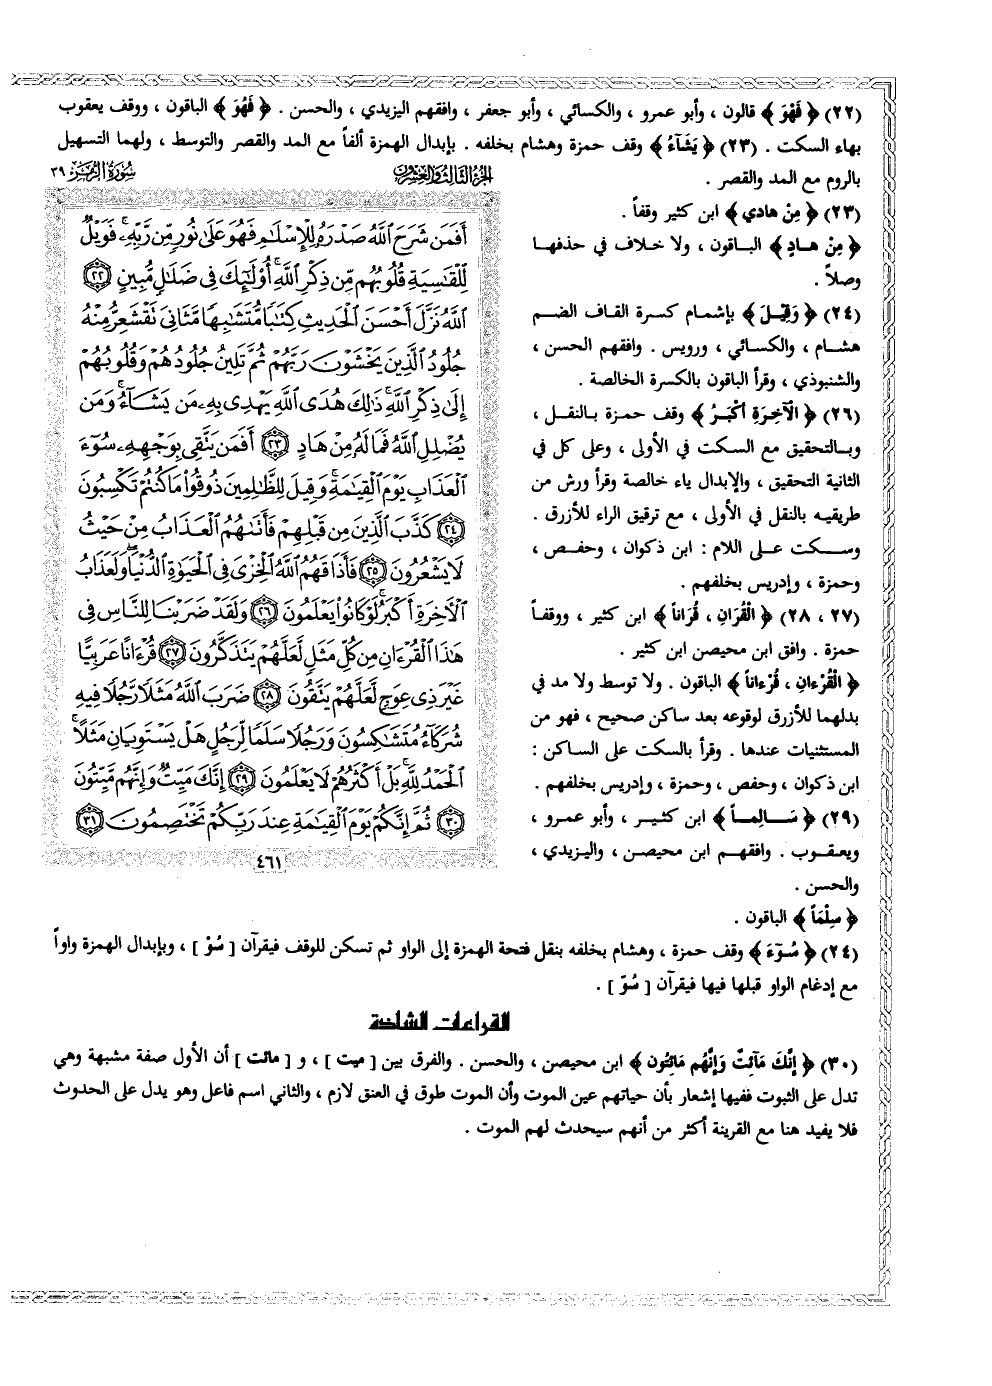 (٢٢) ﴿ فَهْوَ ﴾ قالون ، وأبو عمرو ، والكسائي ، وأبو جعفر ، وافقهم اليزيدي ، والحسن . ﴿ فَهُوَ ﴾ الباقون ، ووقف يعقوب
بهاء السكت . (٢٣) ﴿ يَشَآءُ ﴾ وقف حمزة وهشام بخلفه . بإبدال الهمزة ألفاً مع المد والقصر والتوسط ، ولهما التسهيل
بالروم مع المد والقصر .
(٢٣) ﴿ مِنْ هادي ﴾ ابن كثير وقفاً .
﴿ مِنْ هـادٍ ﴾ الباقون ، ولا خلاف في حذفهـا
وصلاً .
(٢٤) ﴿ وَقِيْلَ ﴾ بإشمام كسرة القاف الضم
هشـام ، والكسائي ، ورويس . وافقهم الحسن ،
والشنبوذي ، وقرأ الباقون بالكسرة الخالصة .
(٢٦) ﴿ الْآخِرَةِ أَكْبَرُ ﴾ وقف حمزة بـالنقل ،
وبـالتحقيق مع السكت في الأولى ، وعلى كل في
الثانية التحقيق ، والإبدال ياء خالصة وقرأ ورش من
طريقيـه بالنقل في الأولى ، مع ترقيق الراء للأزرق .
وسـكت علـى اللام : ابن ذكوان ، وحفـص ،
وحمزة ، وإدريس بخلفهم .
(٢٧ ، ٢٨) ﴿ الْقُرَانِ ، قُرَاناً ﴾ ابن كثير ، ووقفـاً
حمزة . وافق ابن محيصن ابن كثير .
﴿ الْقُرْءانِ ، قُرْءاناً ﴾ الباقون . ولا توسط ولا مد في
بدلهما للأزرق لوقوعه بعد ساكن صحيح ، فهو من
المستثنيات عندها . وقرأ بالسكت على الساكن :
ابن ذكوان ، وحفص ، وحمزة ، وإدريس بخلفهم .
(٢٩) ﴿ سَـالِمـاً ﴾ ابن كثـير ، وأبو عمرو ،
ويعقـوب . وافقهـم ابن محيصـن ، واليزيدي ،
والحسن .
﴿ سِلْمَاً ﴾ الباقون .
(٢٤) ﴿ سُـوْءَ ﴾ وقف حمزة ، وهشام بخلفه بنقل فتحة الهمزة إلى الواو ثم تسكن للوقف فيقرآن [ سُوْ ] ، وبإبدال الهمزة واواً
مع إدغام الواو قبلها فيها فيقرآن [ سُوّ ] .
الجزء الثالث والعشرون
سورة الزمر ٣٩
أَفَمَن شَرَحَ ٱللَّهُ صَدْرَهُۥ لِلْإِسْلَٰمِ فَهُوَ عَلَىٰ نُورٍ مِّن رَّبِّهِۦ ۚ فَوَيْلٌ
لِّلْقَٰسِيَةِ قُلُوبُهُم مِّن ذِكْرِ ٱللَّهِ ۚ أُو۟لَٰٓئِكَ فِى ضَلَٰلٍ مُّبِينٍ ٢٢
ٱللَّهُ نَزَّلَ أَحْسَنَ ٱلْحَدِيثِ كِتَٰبًا مُّتَشَٰبِهًا مَّثَانِىَ تَقْشَعِرُّ مِنْهُ
جُلُودُ ٱلَّذِينَ يَخْشَوْنَ رَبَّهُمْ ثُمَّ تَلِينُ جُلُودُهُمْ وَقُلُوبُهُمْ
إِلَىٰ ذِكْرِ ٱللَّهِ ۚ ذَٰلِكَ هُدَى ٱللَّهِ يَهْدِى بِهِۦ مَن يَشَآءُ ۚ وَمَن
يُضْلِلِ ٱللَّهُ فَمَا لَهُۥ مِنْ هَادٍ ٢٣ أَفَمَن يَتَّقِى بِوَجْهِهِۦ سُوٓءَ
ٱلْعَذَابِ يَوْمَ ٱلْقِيَٰمَةِ ۚ وَقِيلَ لِلظَّٰلِمِينَ ذُوقُوا۟ مَا كُنتُمْ تَكْسِبُونَ
٢٤ كَذَّبَ ٱلَّذِينَ مِن قَبْلِهِمْ فَأَتَىٰهُمُ ٱلْعَذَابُ مِنْ حَيْثُ
لَا يَشْعُرُونَ ٢٥ فَأَذَاقَهُمُ ٱللَّهُ ٱلْخِزْىَ فِى ٱلْحَيَوٰةِ ٱلدُّنْيَا ۖ وَلَعَذَابُ
ٱلْءَاخِرَةِ أَكْبَرُ ۚ لَوْ كَانُوا۟ يَعْلَمُونَ ٢٦ وَلَقَدْ ضَرَبْنَا لِلنَّاسِ فِى
هَٰذَا ٱلْقُرْءَانِ مِن كُلِّ مَثَلٍ لَّعَلَّهُمْ يَتَذَكَّرُونَ ٢٧ قُرْءَانًا عَرَبِيًّا
غَيْرَ ذِى عِوَجٍ لَّعَلَّهُمْ يَتَّقُونَ ٢٨ ضَرَبَ ٱللَّهُ مَثَلًا رَّجُلًا فِيهِ
شُرَكَآءُ مُتَشَٰكِسُونَ وَرَجُلًا سَلَمًا لِّرَجُلٍ هَلْ يَسْتَوِيَانِ مَثَلًا ۚ
ٱلْحَمْدُ لِلَّهِ ۚ بَلْ أَكْثَرُهُمْ لَا يَعْلَمُونَ ٢٩ إِنَّكَ مَيِّتٌ وَإِنَّهُم مَّيِّتُونَ
٣٠ ثُمَّ إِنَّكُمْ يَوْمَ ٱلْقِيَٰمَةِ عِندَ رَبِّكُمْ تَخْتَصِمُونَ ٣١
٤٦١
القراءات الشاذة
(٣٠) ﴿ إِنَّكَ مَآئِتٌ وَإِنَّهُم مَائِتُون ﴾ ابن محيصن ، والحسن . والفرق بين [ ميت ] ، و [ مائت ] أن الأول صفة مشبهة وهي
تدل على الثبوت ففيها إشعار بأن حياتهم عين الموت وأن الموت طوق في العنق لازم ، والثاني اسم فاعل وهو يدل على الحدوث
فلا يفيد هنا مع القرينة أكثر من أنهم سيحدث لهم الموت .